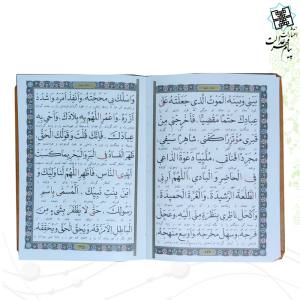 بَيْنى وَبَيْنَهُ الْمَوْتُ الَّذى جَعَلْتَهُ عَلى
عِبادِكَ حَتْماً مَقْضِيّاً فَاَخْرِجْنى مِنْ
قَبْرى مُؤْتَزِراً كَفَنى شاهِراً سَيْفى
مُجَرِّداً قَناتى مُلَبِّياً دَعْوَةَ الدّاعى
فِى الْحاضِرِ وَالْبادى اَللّهُمَّ اَرِنِى
الطَّلْعَةَ الرَّشيدَةَ وَالْغُرَّةَ الْحَميدَةَ
وَاكْحُلْ ناظِرى بِنَظْرَةٍ مِنّى اِلَيْهِ وَعَجِّلْ
فَرَجَهُ وَسَهِّلْ مَخْرَجَهُ وَاَوْسِعْ مَنْهَجَهُ
وَاسْلُكْ بى مَحَجَّتَهُ وَاَنْفِذْ اَمْرَهُ وَاشْدُدْ
اَزْرَهُ وَاعْمُرِ اللّهُمَّ بِهِ بِلادَكَ وَاَحْىِ بِهِ
عِبادَكَ فَاِنَّكَ قُلْتَ وَقَوْلُكَ الْحَقُّ
ظَهَرَ الْفَسادُ فِى الْبَرِّ وَالْبَحْرِ بِما كَسَبَتْ
اَيْدِى النّاسِ فَاَظْهِرِ اللّهُمَّ لَنا وَلِيَّكَ وَ
ابْنَ بِنْتِ نَبِيِّكَ الْمُسَمّى بِاسْمِ
رَسُولِكَ حَتّى لا يَظْفَرَ بِشَىْءٍ مِنَ
الْباطِلِ اِلاّ مَزَّقَهُ وَيُحِقَّ الْحَقَّ وَيُحَقِّقَهُ